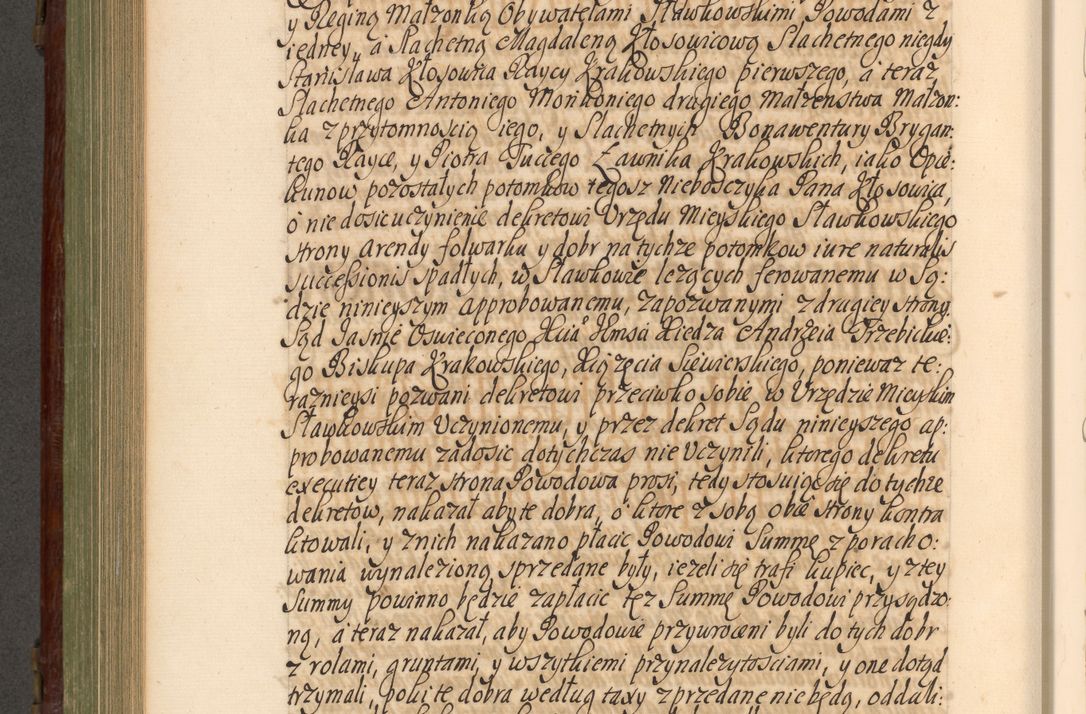 y Reginą Małzonką Obywatelami Sławkowskimi Powodami z
iedney, a Slachetną Magdaleną Kłosowicową Slachetnego niegdy
Stanisława Kłosowica Raycy Krakowskiego pierwszego, a teraz
Slachetnego Antoniego Monkoniego drugiego Małzenstwa Małzon:
ka z przytomnoscią iego, y Slachetnych Bonawentury Brygan:
tego Rayce, y Piotra Fucego Ławnika Krakowskich, iako Opie:
kunow pozostałych potomkow tegosz Nieboszczyka Pana Kłosowica,
o nie dosic uczynienie dekretowi Urzędu Mieyskiego Sławkowskiego
strony arendy folwarku y dobr na tychze potomkow iure naturalis
successionis spadłych, w Sławkowie lezących ferowanemu w Są:
dzie ninieyszym approbowanemu, zapozwanymi z drugiey strony.
Sąd Jasnie Oswieconego Xcia Jmsci Xiedza Andrzeia Trzebickie:
go Biskupa Krakowskiego, Xiązęcia Siewierskiego, poniewaz te:
raznieysi pozwani dekretowi przeciwko sobie w Urzędzie Mieyskim
Sławkowskim Uczynionemu, y przez dekret Sądu ninieyszego ap:
probowanemu zadosic dotychczas nie Uczynili, ktorego dekretu
executiey teraz strona Powodowa prosi, tedy stosuiąc się do tychze
dekretow, nakazał aby te dobra, o ktore z sobą obie strony kontra
ktowali, y z nich nakazano płacic Powodowi Summe z poracho:
wania wynalezioną sprzedane były, iezeli się trafi kupiec, y z tey
Summy powinno będzie zapłacic tęz Summę Powodowi przysądzo:
ną, a teraz nakazał, aby Powodowie przywroceni byli do tych dobr
z rolami, gruntami, y wszytkiemi przynalezytosciami, y one dotąd
trzymali, poki te dobra według taxy zprzedane nie będą, oddali: